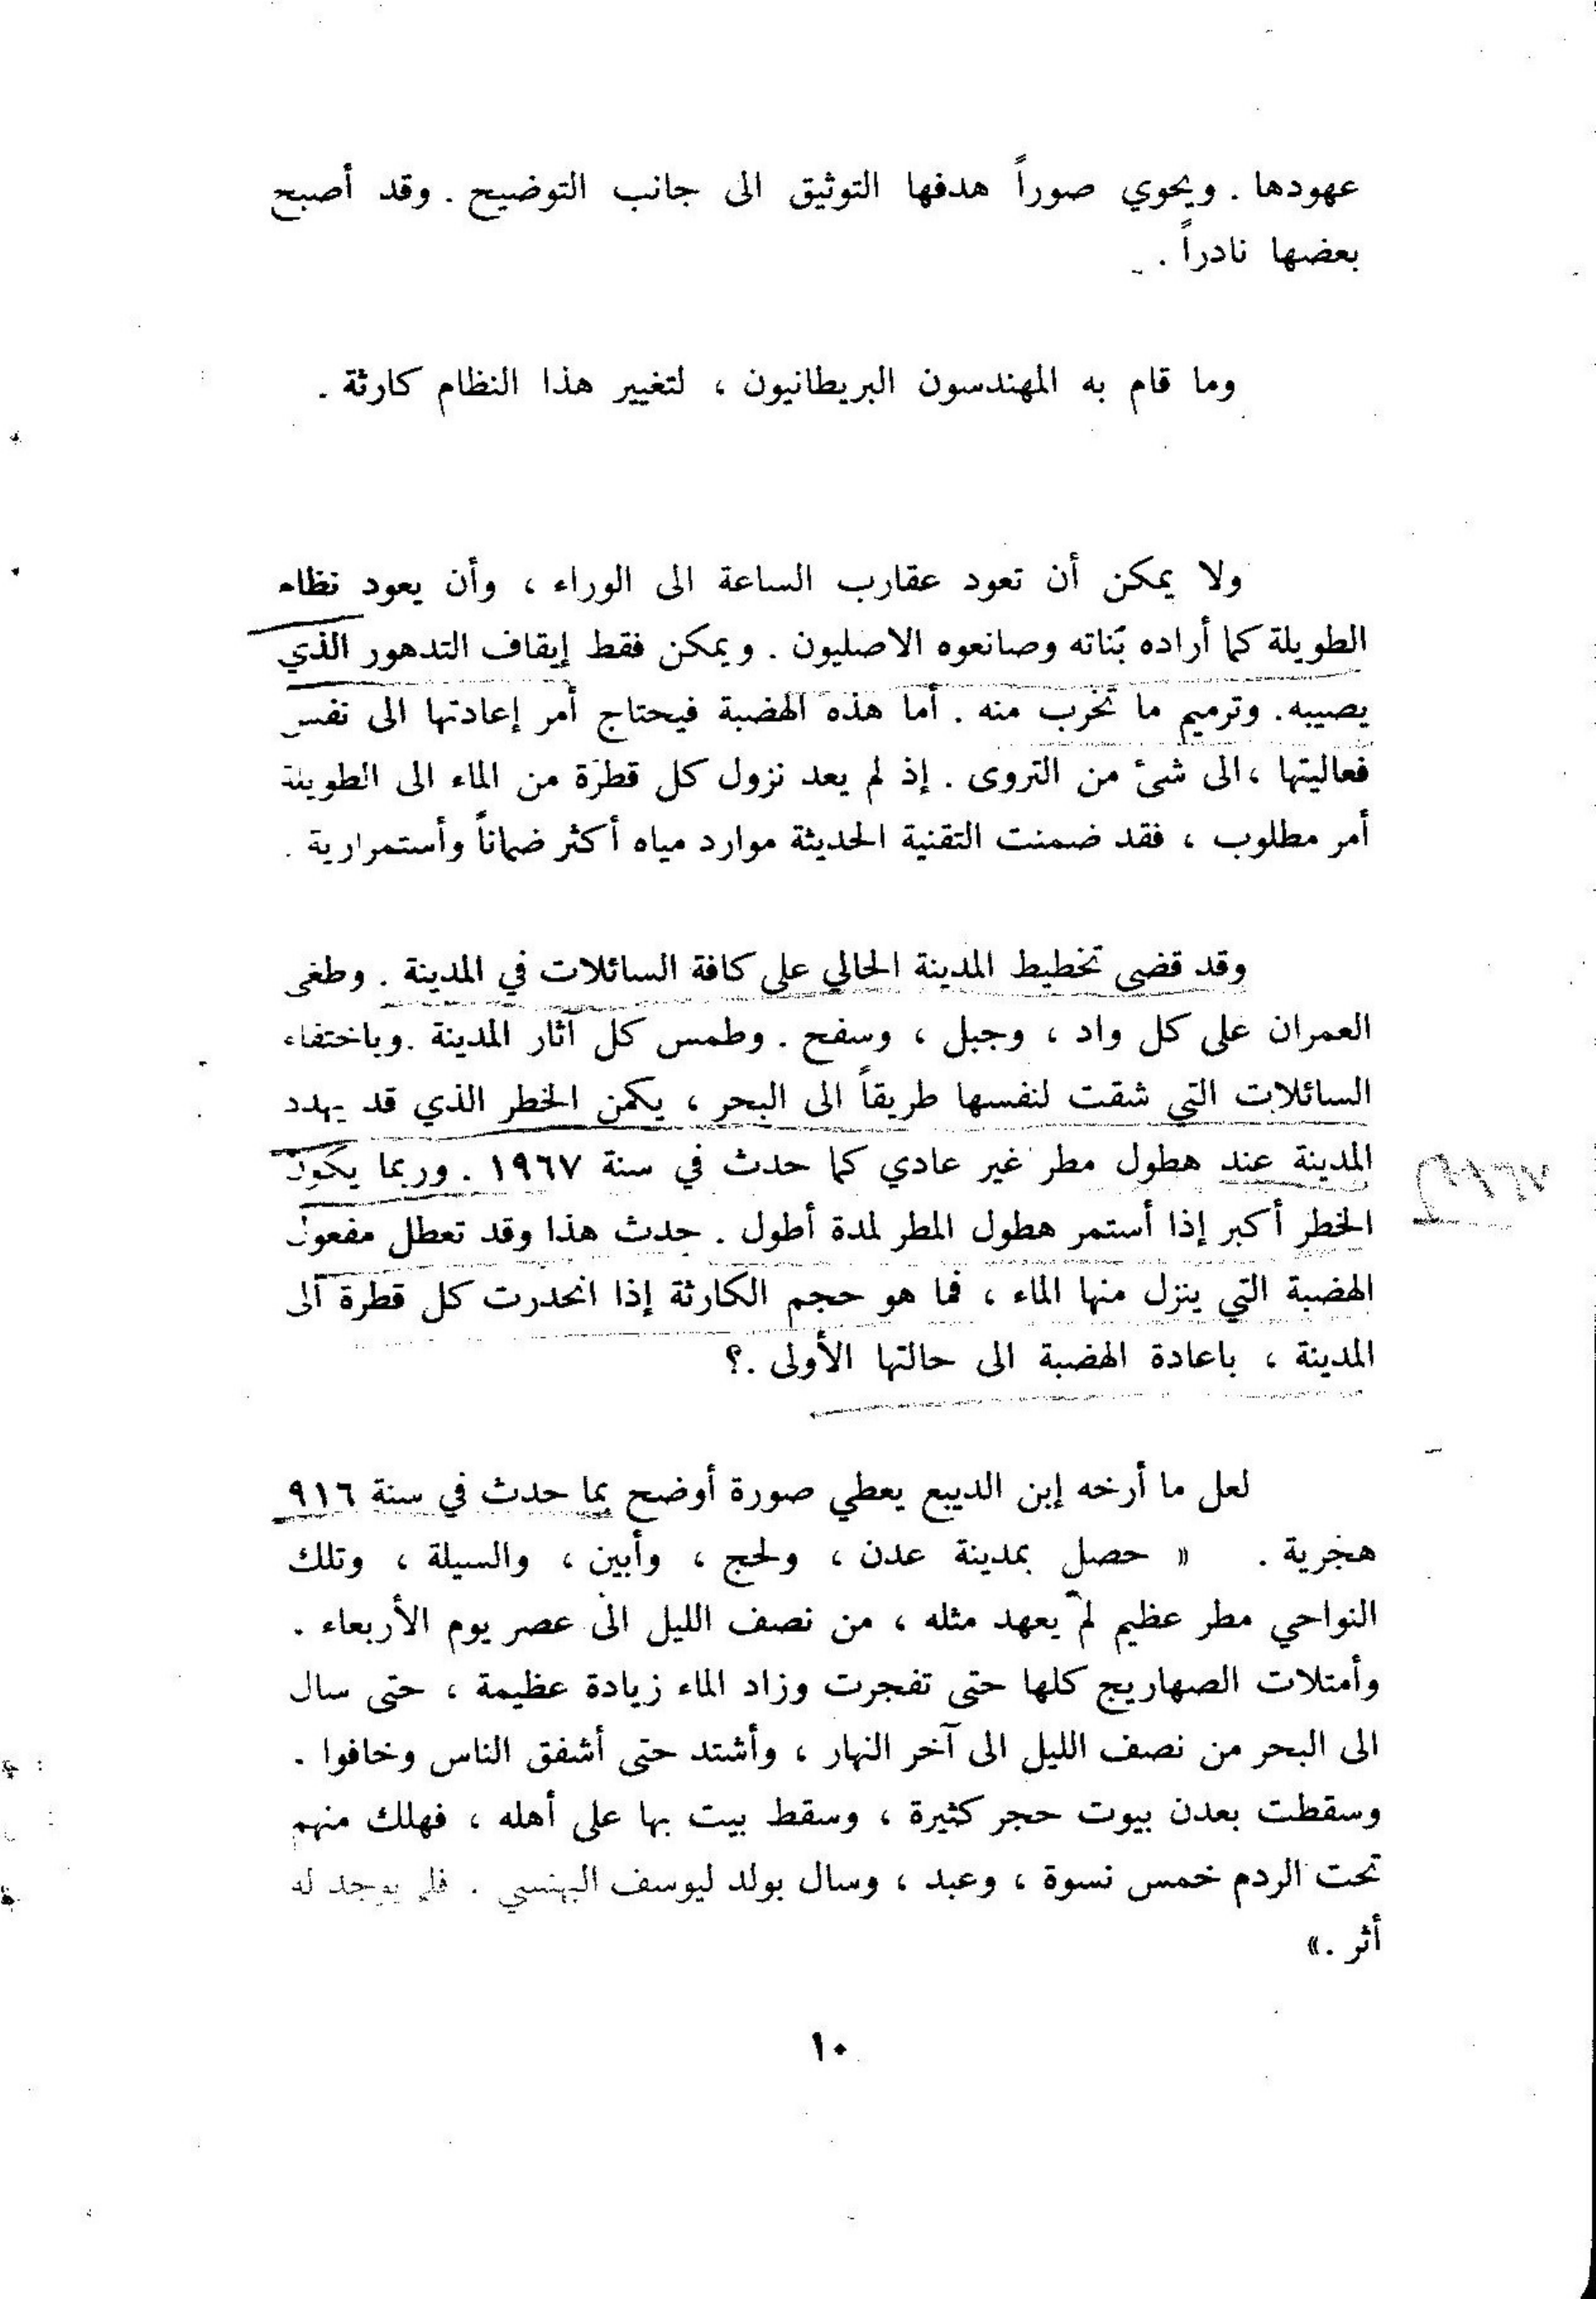 عهودها . ويحوي صوراً هدفها التوثيق الى جانب التوضيح . وقد أصبح
بعضها نادراً .
وما قام به المهندسون البريطانيون ، لتغيير هذا النظام كارثة .
ولا يمكن أن تعود عقارب الساعة الى الوراء ، وأن يعود نظام
الطويلة كما أراده بُناته وصانعوه الاصليون . ويمكن فقط إيقاف التدهور الذي
يصيبه . وترميم ما تخرب منه . أما هذه الهضبة فيحتاج أمر إعادتها الى نفس
فعاليتها ، الى شئ من التروى . إذ لم يعد نزول كل قطرة من الماء الى الطويلة
أمر مطلوب ، فقد ضمنت التقنية الحديثة موارد مياه أكثر ضماناً وأستمرارية .
وقد قضى تخطيط المدينة الحالي على كافة السائلات في المدينة . وطغى
العمران على كل واد ، وجبل ، وسفح . وطمس كل آثار المدينة . وباختفاء
السائلات التي شقت لنفسها طريقاً الى البحر ، يكمن الخطر الذي قد يهدد
المدينة عند هطول مطر غير عادي كما حدث في سنة ١٩٦٧ . وربما يكون
الخطر أكبر إذا أستمر هطول المطر لمدة أطول . حدث هذا وقد تعطل مفعول
الهضبة التي ينزل منها الماء ، فما هو حجم الكارثة إذا انحدرت كل قطرة الى
المدينة ، باعادة الهضبة الى حالتها الأولى .؟
لعل ما أرخه إبن الديبع يعطي صورة أوضح بما حدث في سنة ٩١٦
هجرية . « حصل بمدينة عدن ، ولحج ، وأبين ، والسيلة ، وتلك
النواحي مطر عظيم لم يعهد مثله ، من نصف الليل الى عصر يوم الأربعاء .
وأمتلات الصهاريج كلها حتى تفجرت وزاد الماء زيادة عظيمة ، حتى سال
الى البحر من نصف الليل الى آخر النهار ، وأشتد حتى أشفق الناس وخافوا .
وسقطت بعدن بيوت حجر كثيرة ، وسقط بيت بها على أهله ، فهلك منهم
تحت الردم خمس نسوة ، وعبد ، وسال بولد ليوسف البهنسي . فلم يوجد له
أثر .»
١٠